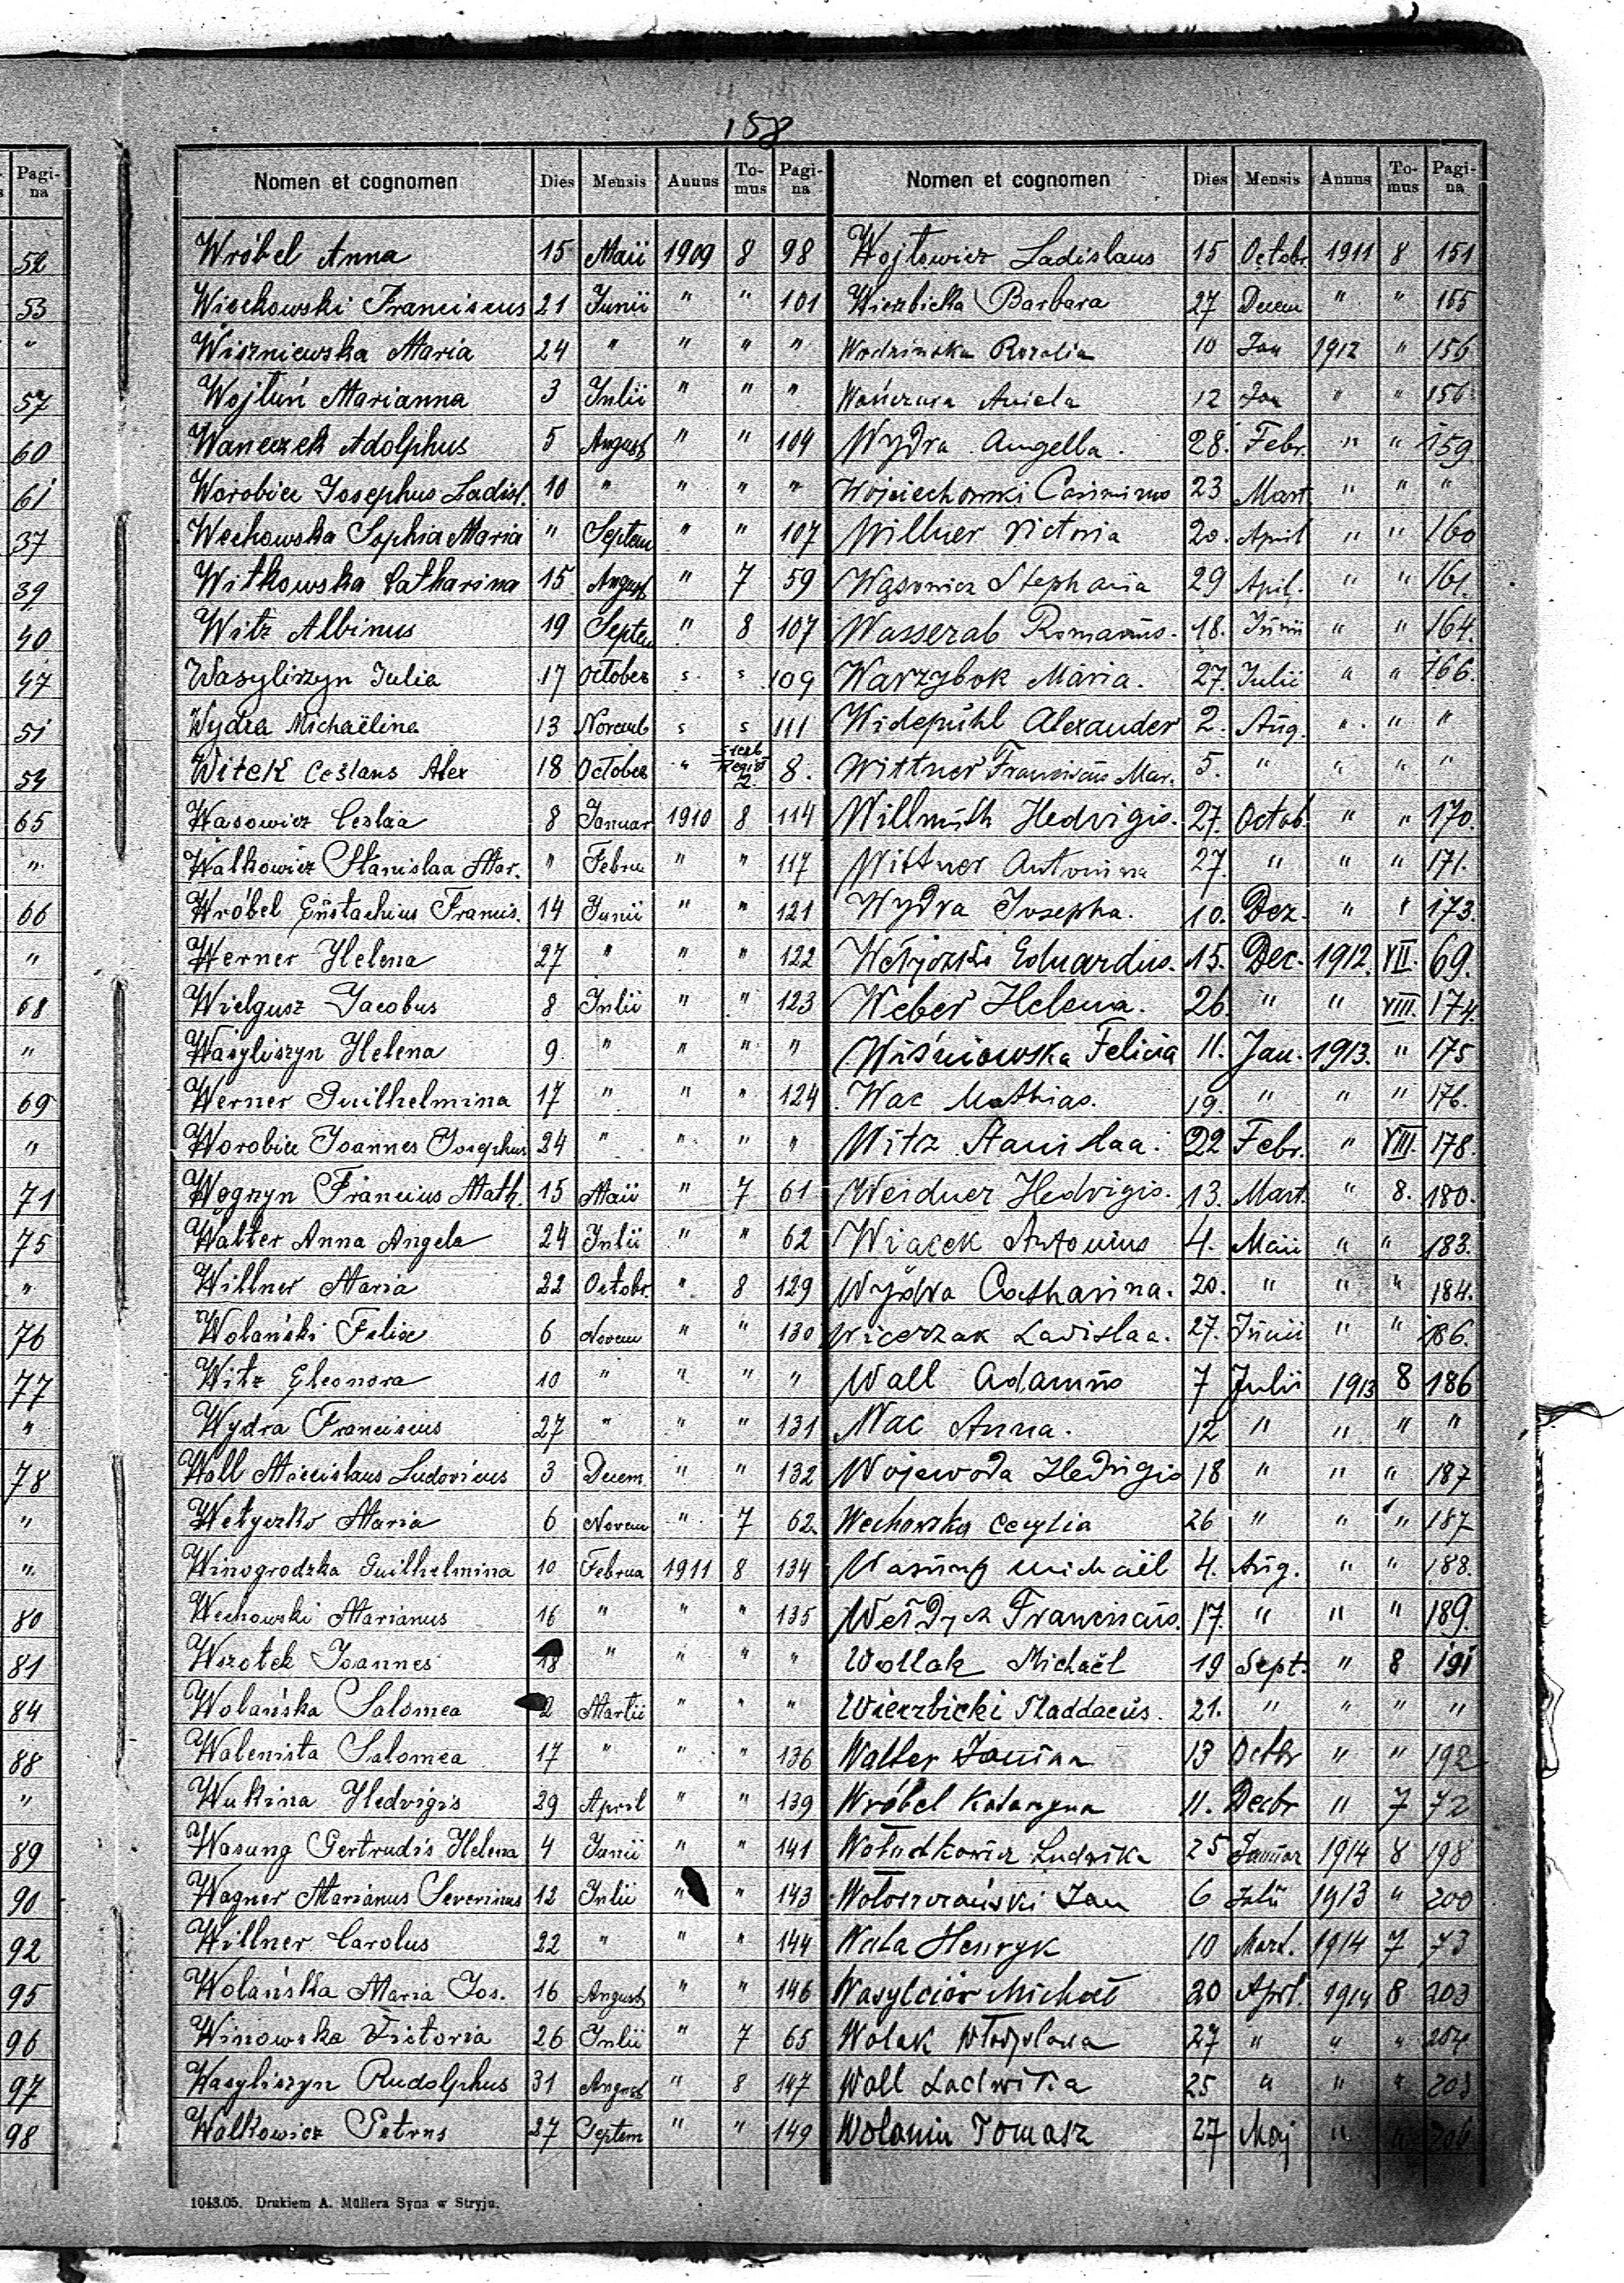 158
Pagina
52
53
"
57
60
61
37
39
40
47
51
54
65
"
66
"
68
"
69
"
71
75
"
76
77
"
78
"
"
80
81
84
88
"
89
90
92
95
96
97
98
Nomen et cognomen Dies Mensis Annus Tomus Pagina
Wróbel Anna 15 Maii 1909 8 98
Wiechowski Franciscus 21 Junii " " 101
Wiszniewska Maria 24 " " " "
Wojtuń Marianna 3 Julii " " "
Waneczek Adolphus 5 August " " 104
Worobiec Josephus Ladisl. 10 " " " "
Wechowska Sophia Maria " Septem " " 107
Witkowska Catharina 15 August " 7 59
Witz Albinus 19 Septem " 8 107
Wasyliszyn Julia 17 October s s 109
Wydra Michaëlina 13 Novemb s s 111
Witek Ceslaus Alex 18 October " 2. 8.
Wasowicz Ceslaa 8 Januar 1910 8 114
Walkowicz Stanislaa Mar. " Febru " " 117
Wróbel Eustachius Francis. 14 Junii " " 121
Werner Helena 27 " " " 122
Wielgusz Jacobus 8 Julii " " 123
Wasyliszyn Helena 9 " " " "
Werner Guilhelmina 17 " " " 124
Worobiec Joannes Josephus 24 " " " "
Węgrzyn Francius Math. 15 Maii " 7 61
Walter Anna Angela 24 Julii " " 62
Willner Maria 22 Octobr. " 8 129
Wolański Felix 6 Novem " " 130
Witz Eleonora 10 " " " "
Wydra Franciscus 27 " " " 131
Woll Miecislaus Ludovicus 3 Decem " " 132
Wetyczko Maria 6 Novem " 7 62
Winogrodzka Guilhelmina 10 Februa 1911 8 134
Wechowski Marianus 16 " " " 135
Wrotek Joannes 18 " " " "
Wolańska Salomea 2 Martii " " "
Walenista Salomea 17 " " " 136
Wukina Hedvigis 29 April " " 139
Wasung Gertrudis Helena 4 Junii " " 141
Wagner Marianus Severinus 12 Julii " " 143
Willner Carolus 22 " " " 144
Wolańska Maria Jos. 16 August " " 146
Winowska Victoria 26 Julii " 7 65
Wasyliszyn Rudolphus 31 August " 8 147
Walkowicz Petrus 27 Septem " " 149
1043.05. Drukiem A. Müllera Syna w Stryju.
Nomen et cognomen Dies Mensis Annus Tomus Pagina
Wojtowicz Ladislaus 15 Octobr. 1911 8 151
Wierzbicka Barbara 27 Decem " " 155
Wodzinska Rozalia 10 Jan 1912 " 156
Aniela 12 Jan " " 156
Wydra Angella. 28. Febr. " " 159.
Wojciechowski Casimirus 23 Mart " " "
Willner Victoria 20. April " " 160
Wąsowicz Stephania 29 April. " " 161.
Wasserab Romanus. 18. Junii " " 164.
Warzybok Maria. 27. Julii " " 166.
Widepühl Alexander 2. Aug. " " "
Wittner Franciscus Mar. 5. " " " "
Willmuth Hedvigis. 27. Octob. " " 170.
Wittner Antonina 27. " " " 171.
Wydra Josepha. 10. Dez. " " 173.
Eduardus. 15. Dec. 1912. VII. 69.
Weber Helena. 26. " " VIII. 174.
Wiśniowska Felicia 11. Jan. 1913. " 175
Wac Mathias. 19. " " " 176.
Witz Stanislaa. 22 Febr. " VIII. 178.
Weidner Hedvigis. 13. Mart. " 8. 180.
Wiacek Antonius 4. Maii " " 183.
Wydra Catharina. 20. " " " 184.
Wieczak Ladislaa. 27. Junii " " 186.
Wall Adamus 7 Julii 1913 8 186
Wac Anna. 12 " " " "
Wojewoda Hedvigis 18 " " " 187
Wechowska Cecylia 26 " " " 187
Wasung Michaël 4. Aug. " " 188.
Franciscus. 17. " " " 189.
Wollak Michaël 19 Sept. " 8 191
Wierzbicki Thaddaeus. 21. " " " "
Walter Janina 13 Octbr " " 192
Wróbel Katarzyna 11. Decbr " 7 72
Wołudkowicz Ludwika 25 Januar 1914 8 198
Wołoszczański Jan 6 Julii 1913 " 200
Wala Henryk 10 Mart. 1914 7 73
Michał 20 Aprl. 1914 8 203
Wolak 27 " " " 204
Woll Ludwika 25 " " " 205
Wolanin Tomasz 27 Maj " " 206